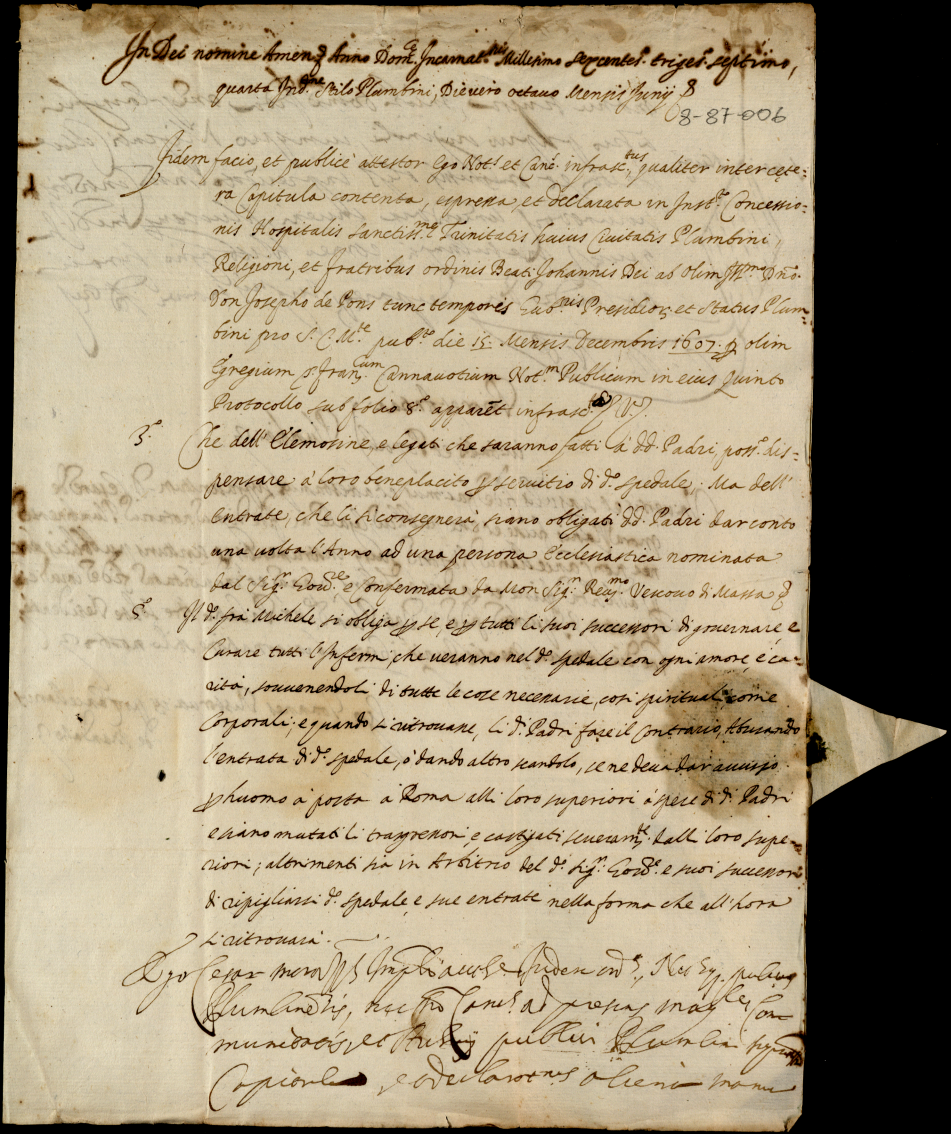 In Dei nomine Amen Anno Dom.ce Incarnat.nis Millesimo sexcentes.o triges.o septimo,
quarta Ind.ne stilo Plumbini, Die vero octavo Mensis Junij
8-87-006
Fidem facio, et publicè attestor Ego Not.s et Canc. infrasc.tus, qualiter inter cęte=
ra Capitula contenta, espressa, et declarata in Inst.to Concessio=
nis Hospitalis Sanctiss.mę Trinitatis huius Civitatis Plumbini,
Religioni, et fratribus ordinis Beati Johannis Dei ab olim Ill.mo Dño.
Don Josepho de Pons tunc temporis Gub.ris Presidior. et Status Plum=
bini pro S. C. M.te pub.te die 15. Mensis Decembris 1607. p olim
Egregium s. Fran.cum Cannavotium Not.m Publicum in eius Quinto
Protocollo sub folio 8.o apparẽt infrasc.ta V.
3.o Che dell' Elemosine, e legati che saranno fatti à dd. Padri, poss.o dis=
pensare à loro beneplacito p servitio di d.o spedale. Ma dell'
entrate, che li si consegnerà, siano obligati dd. Padri dar conto
una volta l'Anno ad una persona Ecclesiastica nominata
dal Sig.r Gov.re e confermata da Mon Sig.r Rev.mo Vescovo di Massa
5.o Il d.o fra Michele si obliga p se, e p tutti li suoi successori di governare, e
Curare tutti l'Infermi, che veranno nel d.o spedale con ogni amore, e ca=
rità, sovvenendoli di tutte le cose necessarie, cosi spirituali, come
Corporali; e quando si ritrovasse, li d.i Padri fare il Contrario, Abusando
l'entrata di d.o spedale, ò dando altro scandolo, se ne deva dar avviso
p huomo à posta à Roma alli loro superiori à spese di d.i Padri
e siano mutati li trasgressori, e castigati severam.te dalli loro supe=
riori; altrimenti sia in Arbitrio del d.o Sig.r Gov.re e suoi successori
di ripigliarsi d.o spedale, e sue entrate nella forma che all'hora
si ritrovarà.
Ego Cesar
Plumbinensis, Canc.s ad presens mag.ce Com=
munitatis, et publici Plumbini
Capitula, et declarationes aliena manu